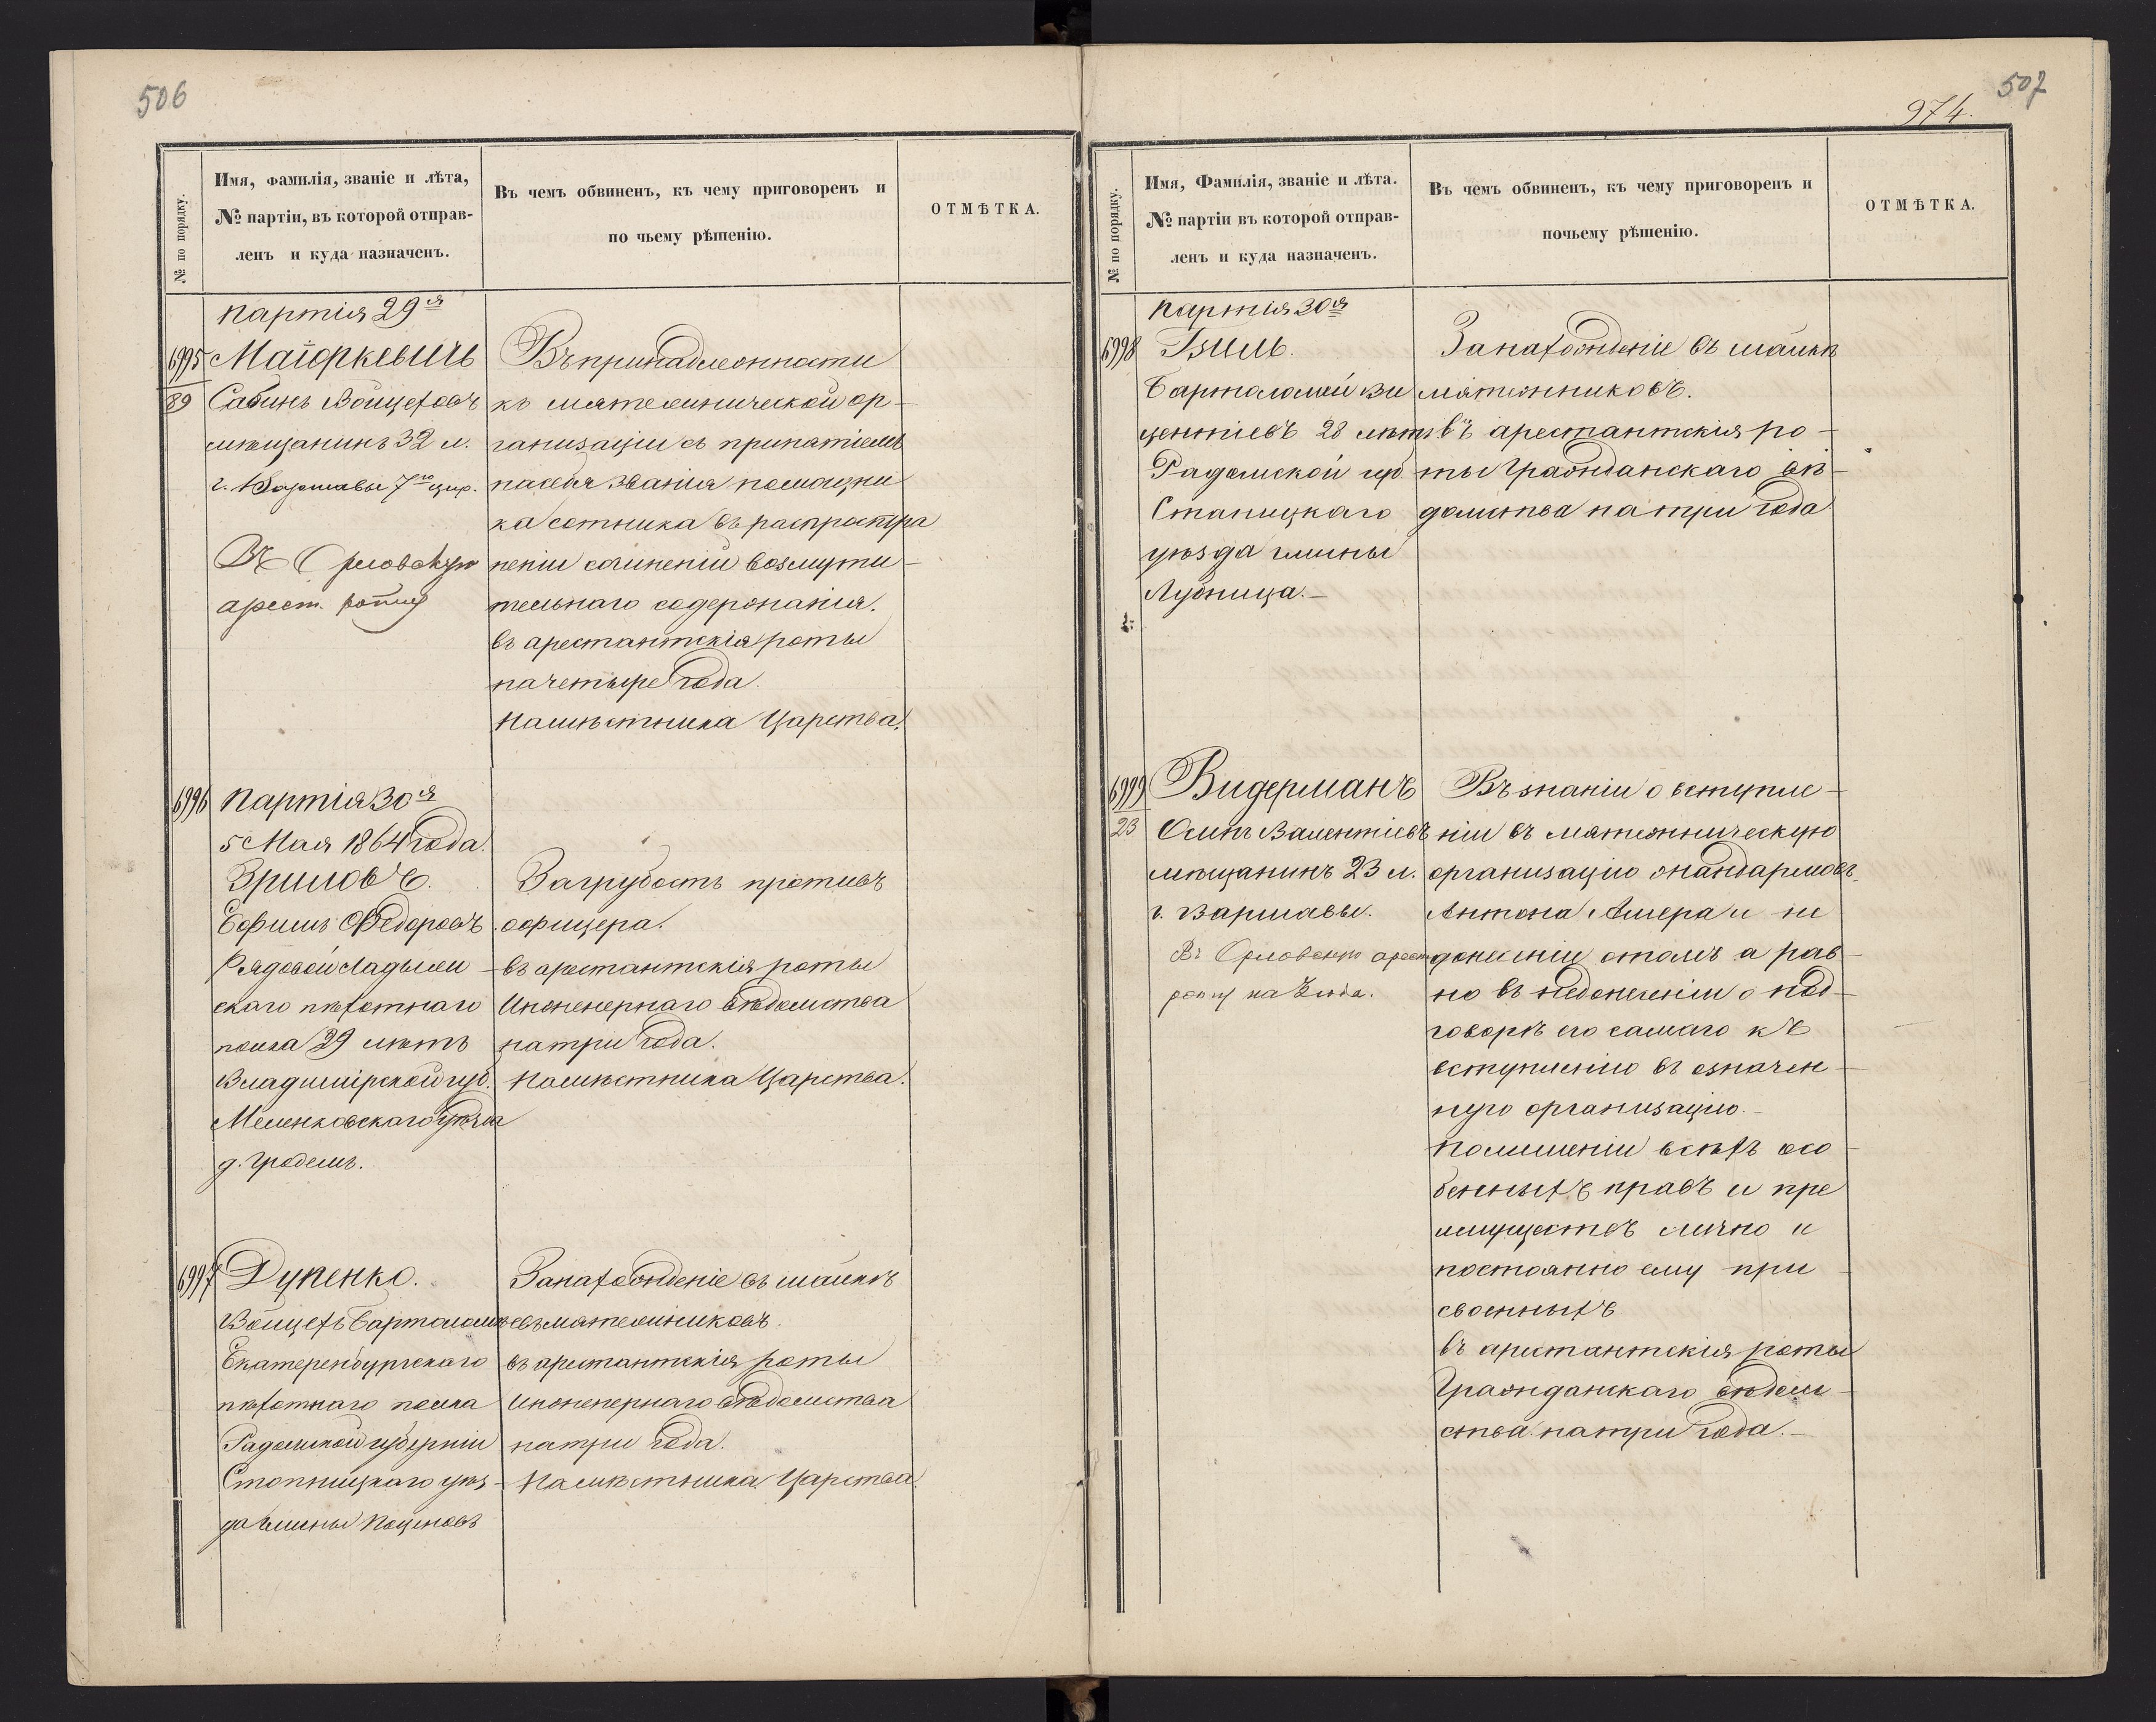 506
№ по порядку.
Имя, фамилія, званіе и лѣта,
№ партіи, въ которой отправ-
ленъ и куда назначенъ.
Въ чемъ обвиненъ, къ чему приговоренъ и
по чьему рѣшенію.
ОТМѢТКА.
партія 29я
6995
89
Маіоркевичь
Сабинъ Войцеховъ
мѣщанинъ 32 л.
г. Варшавы 7го цир.
Въ Орловскую
арест. роту
Въ принадлежности
къ мятежнической ор-
ганизаціи съ принятіемъ
на себя званія помощни
ка сотника въ распростра
неніи сочиненій возмути-
тельнаго содержанія.
въ арестантскія роты
на четыре года.
Намѣстника Царства.
6996
партія 30я
5 Мая 1864 года.
Зриловъ.
Ефимъ Ѳедоровъ
Рядовой Ладыжен-
скаго пѣхотнаго
полка 29 лѣтъ
Владимірской губ.
Меленковскаго уѣзда
д.
За грубость противъ
офицера.
въ арестантскія роты
Инженернаго вѣдомства
на три года.
Намѣстника Царства.
6997
Дупенко.
Войцехъ Бартоломѣевъ
Екатеренбургскаго
пѣхотнаго полка
Радомской губерніи
Стопницкаго уѣз-
да Гмины Поценовъ
За нахожденіе въ шайкѣ
мятежниковъ.
въ арестантскія роты
Инженернаго вѣдомства
на три года.
Намѣстника Царства.
507
974.
№ по порядку.
Имя, Фамилія, званіе и лѣта.
№ партіи въ которой отправ-
ленъ и куда назначенъ.
Въ чемъ обвиненъ, къ чему приговоренъ и
почьему рѣшенію.
ОТМѢТКА.
партія 30я
6998
Бартоломѣй Ви
центіевъ 28 лѣтъ
Радомской губ.
Стапицкаго
уѣзда гмины
Лубница.—
За нахожденіе въ шайкѣ
мятежниковъ.
въ арестантскія ро-
ты Гражданскаго вѣ-
домства на три года
6999
23
Видерманъ
Осипъ Валентіевъ
мѣщанинъ 23 л.
г. Варшавы.
Въ Орловскую арест
роту на 3 года.
Въ знаніи о вступле-
ніи въ мятежническую
организацію жандармовъ
Антона и не
донесеніи о томъ а рав-
но въ недонесеніи о под-
говорѣ его самаго къ
вступленію въ означен-
ную организацію.—
По лишеніи всѣхъ осо-
бенныхъ правъ и пре
имуществъ лично и
постоянно ему при
своенныхъ
въ арестантскія роты
Гражданскаго вѣдом-
ства на три года.—